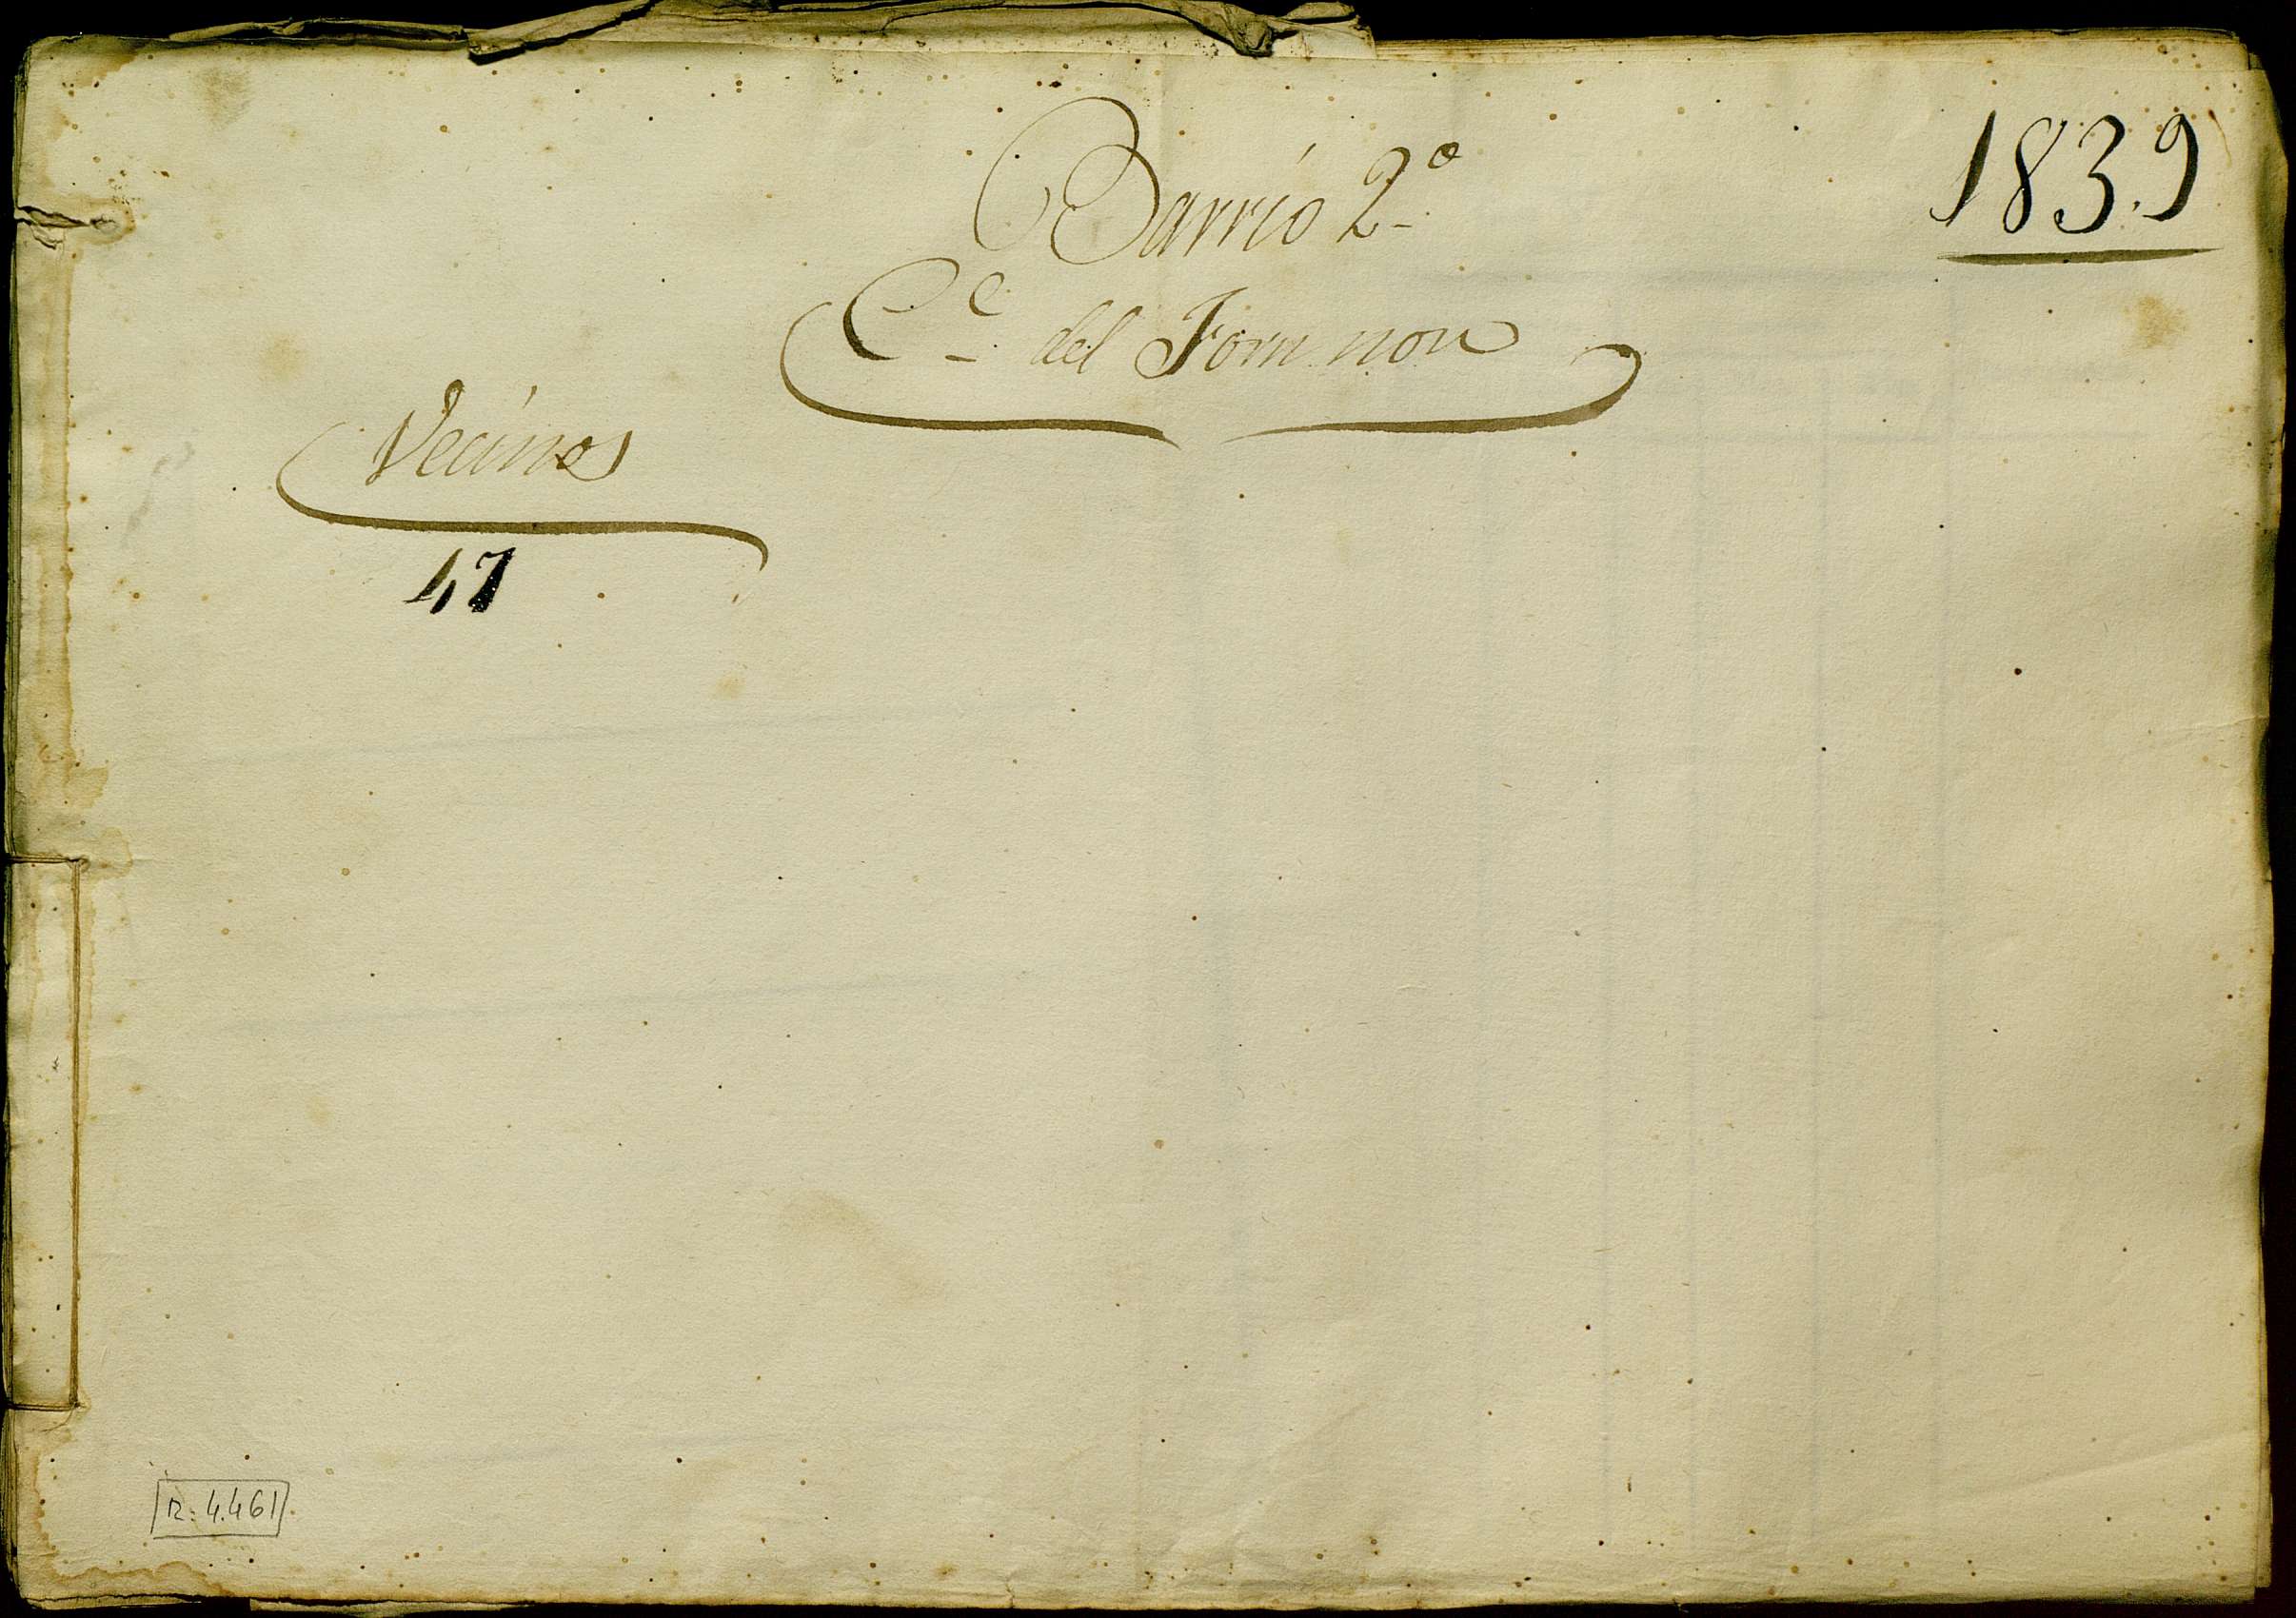 1839
Barrio 2º
Cᵉ del Forn nou
Vecinos
47
R: 4.461